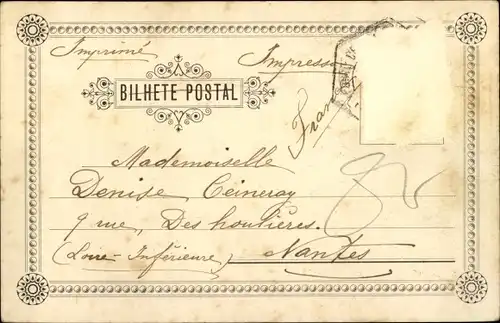 Imprimé
Impresso
BILHETE POSTAL
Mademoiselle
Denise Ceineray
9 rue, Des houlières.
(Loire-Inférieure)
Nantes